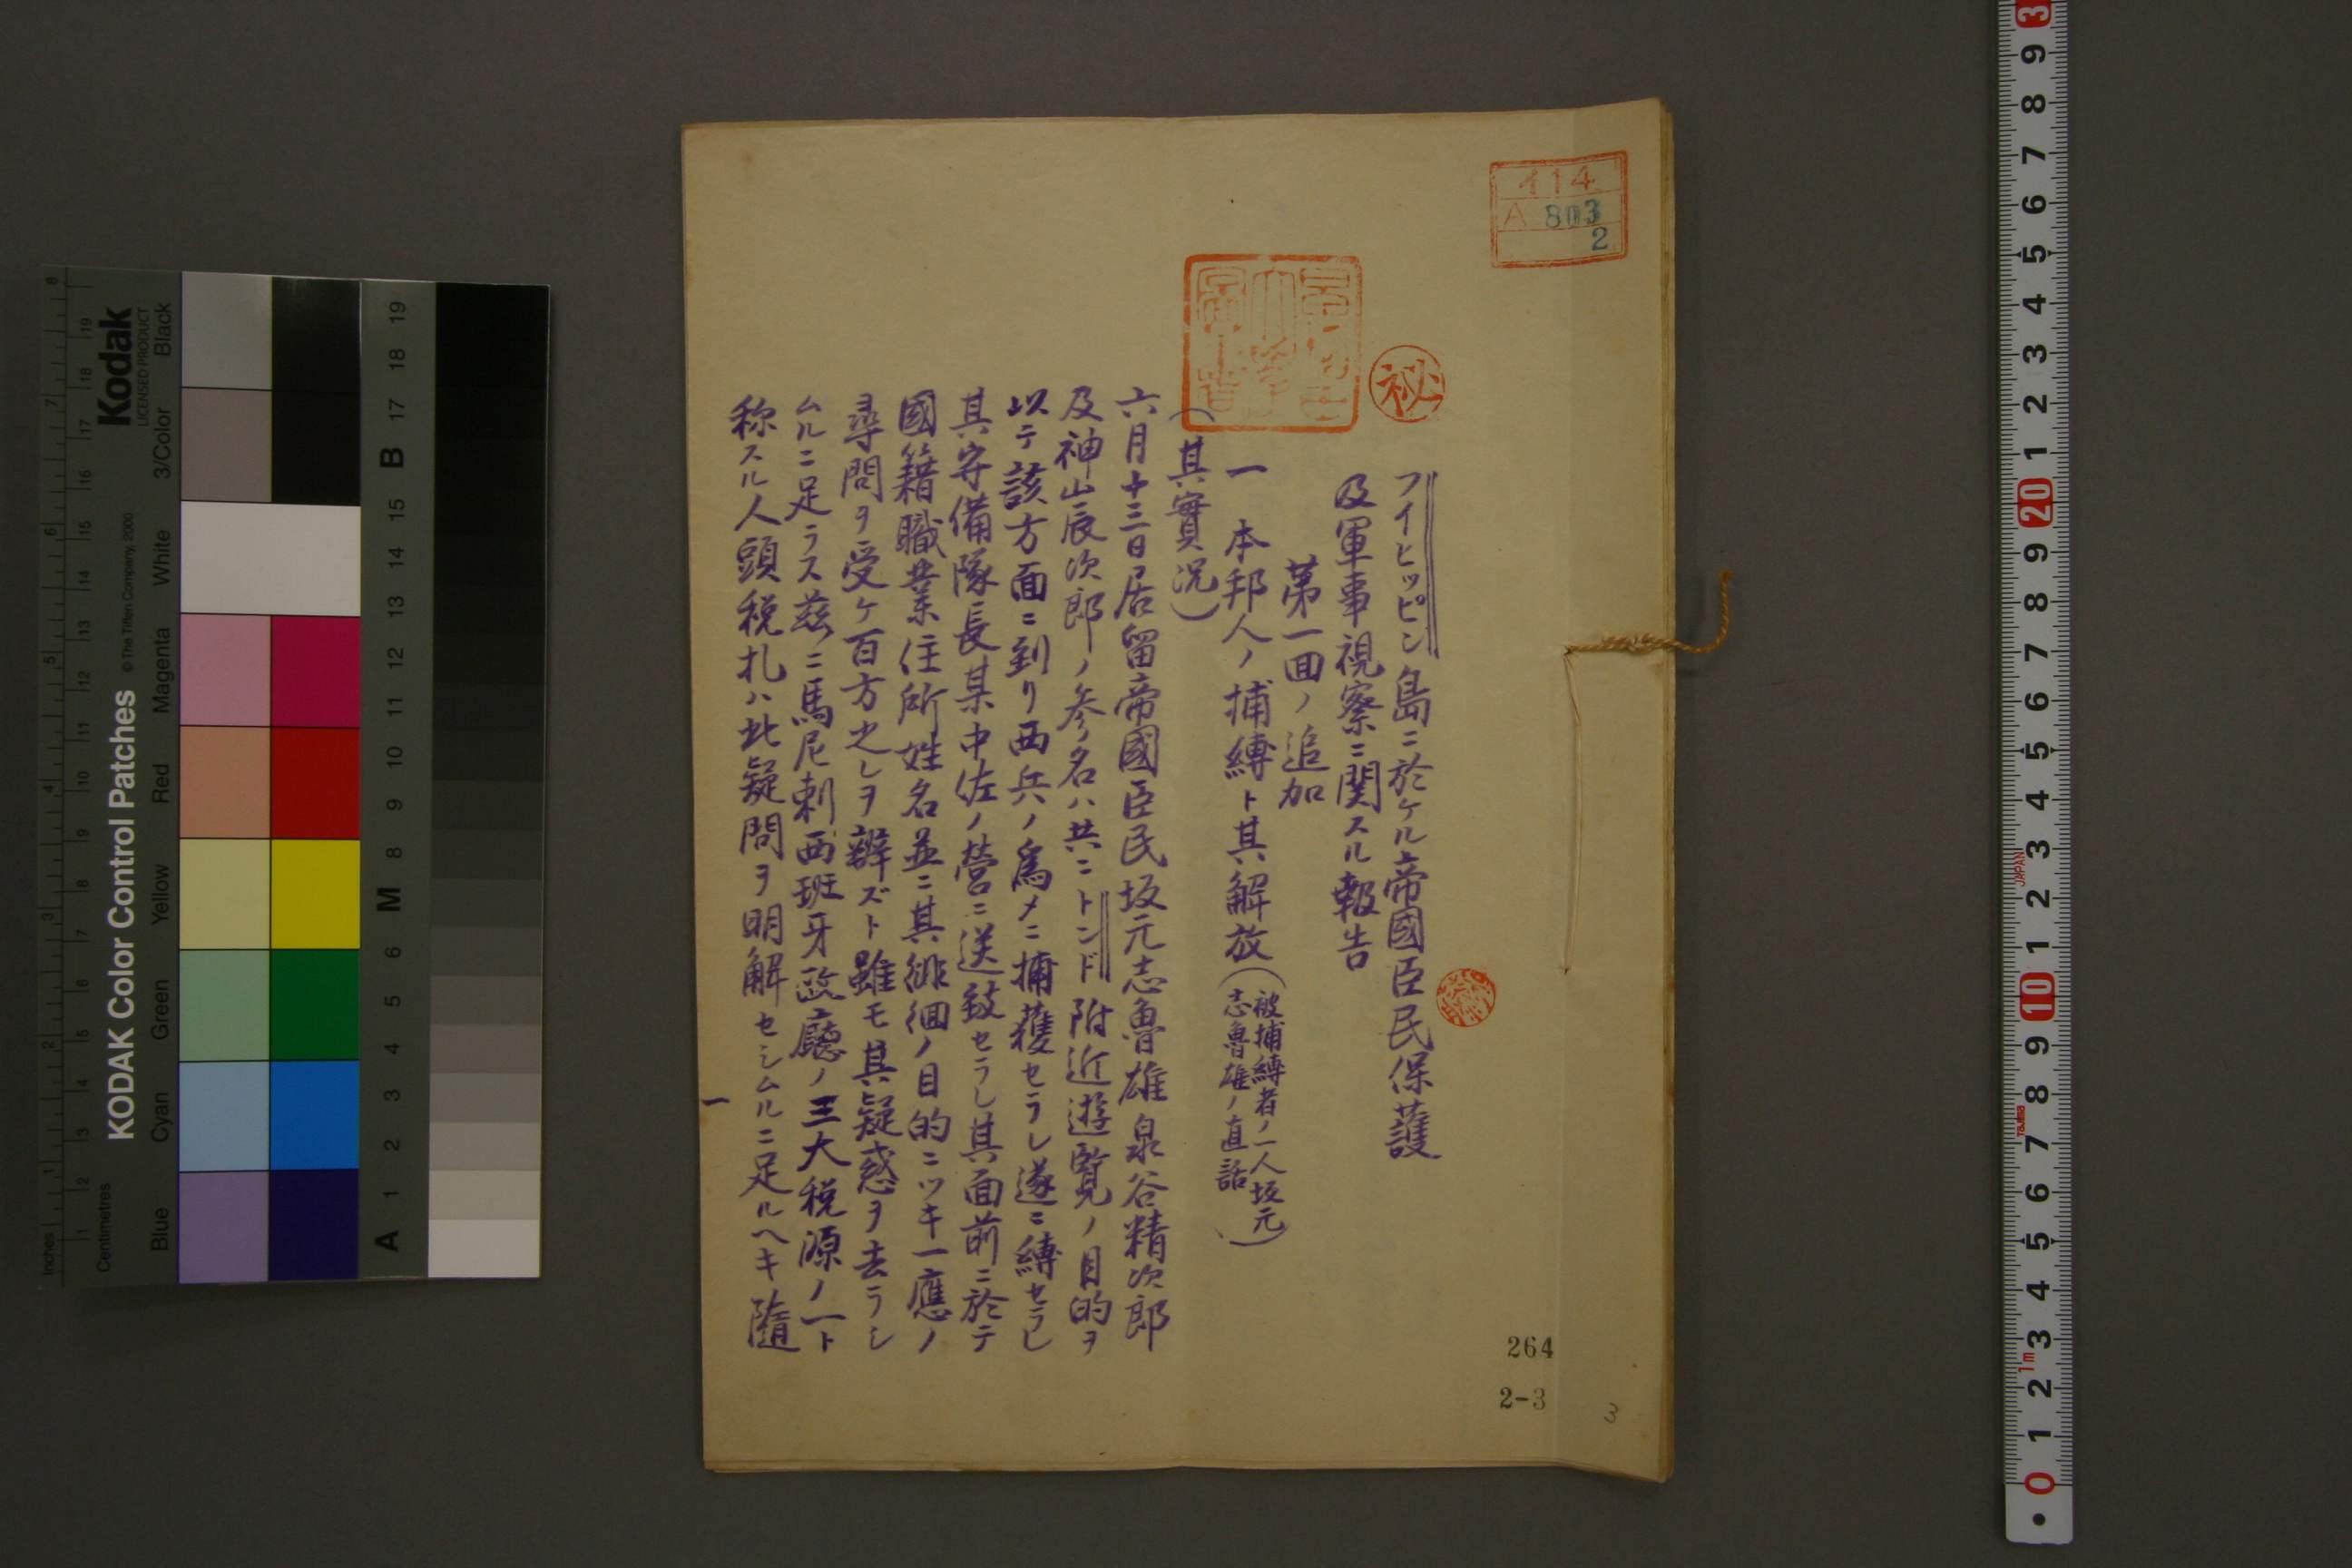 フイヒッピン島ニ於ケル帝國臣民保護
及軍事視察ニ関スル報告
第一回ノ追加
一 本邦人ノ捕縛ト其解放（被捕縛者ノ一人坂元
志魯雄ノ直話）
（其實況）
六月十三日居留帝國臣民坂元志魯雄泉谷精次郎
及神山辰次郎ノ参名ハ共ニトンド附近遊覧ノ目的ヲ
以テ該方面ニ到リ西兵ノ為メニ捕獲セラレ遂ニ縛セラレ
其守備隊長某中佐ノ營ニ送致セラレ其面前ニ於テ
國籍職業住所姓名並ニ其徘徊ノ目的ニツキ一應ノ
尋問ヲ受ケ百方之レヲ辨ズト雖モ其疑惑ヲ去ラシ
ムルニ足ラス茲ニ馬尼剌西班牙政廳ノ三大税源ノ一ト
称スル人頭税札ハ此疑問ヲ明解セシムルニ足ルヘキ随
一
秘
114
A 803
2
264
2-3
3
Kodak
LICENSED PRODUCT
KODAK Color Control Patches
© The Tiffen Company, 2000
Inches
Centimetres
Blue
Cyan
Green
Yellow
Red
Magenta
White
3/Color
Black
A 1 2 3 4 5 6 M 8 9 10 11 12 13 14 15 B 17 18 19
JAPAN
Tajima
1m
0 1 2 3 4 5 6 7 8 9 10 1 2 3 4 5 6 7 8 9 20 1 2 3 4 5 6 7 8 9 3